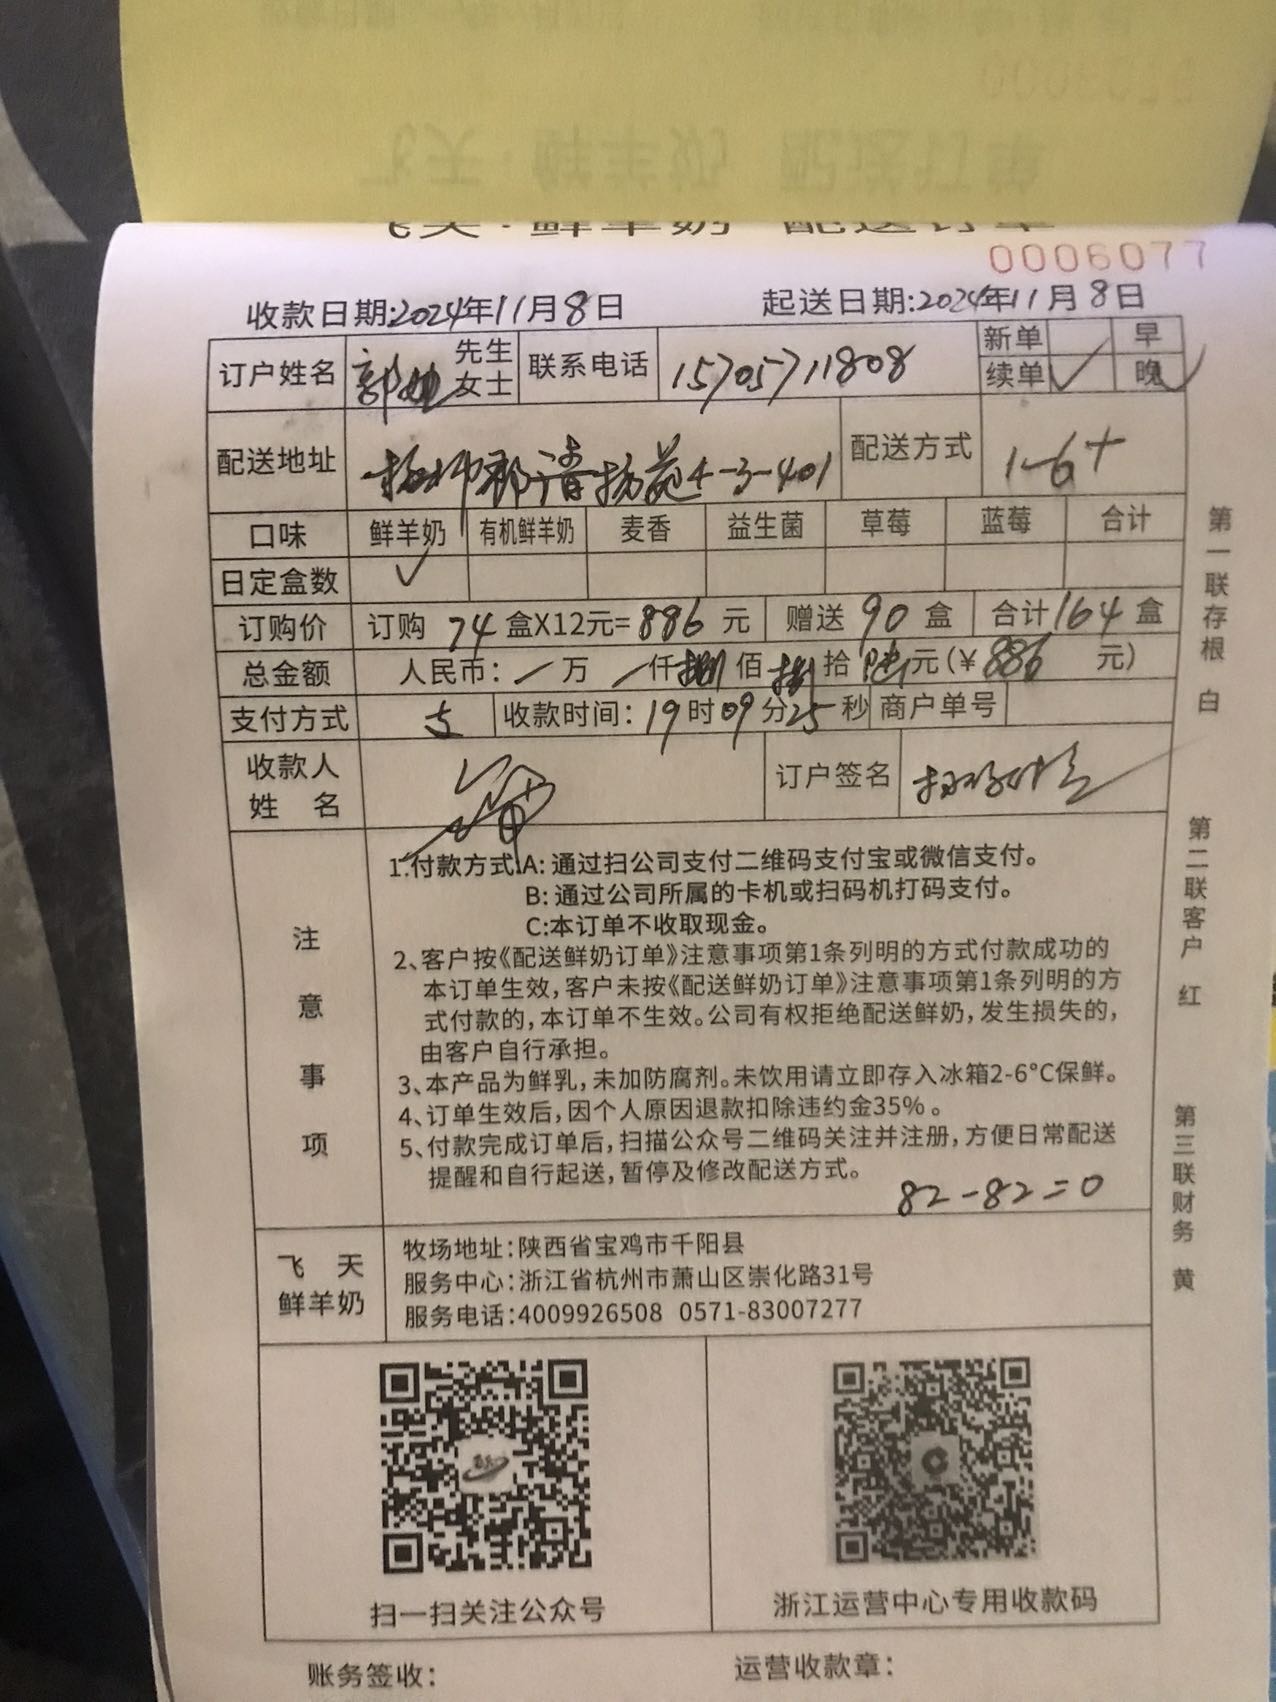 飞天·鲜羊奶 配送订单
0006077
收款日期:2024年11月8日 起送日期:2024年11月8日
订户姓名 郭 先生 女士 联系电话 15705711808 新单 早
续单 ✓ 晚 ✓
配送地址 清扬苑4-3-401 配送方式 1-6+
口味 鲜羊奶 有机鲜羊奶 麦香 益生菌 草莓 蓝莓 合计
日定盒数 ✓
订购价 订购 74 盒X12元=886 元 赠送 90 盒 合计164盒
总金额 人民币: / 万 / 仟 捌 佰 捌 拾 陆 元(¥886 元)
支付方式 支 收款时间: 19时09分25秒 商户单号
收款人
姓 名 订户签名
注意事项
1.付款方式A: 通过扫公司支付二维码支付宝或微信支付。
B: 通过公司所属的卡机或扫码机打码支付。
C:本订单不收取现金。
2、客户按《配送鲜奶订单》注意事项第1条列明的方式付款成功的
本订单生效,客户未按《配送鲜奶订单》注意事项第1条列明的方
式付款的,本订单不生效。公司有权拒绝配送鲜奶,发生损失的,
由客户自行承担。
3、本产品为鲜乳,未加防腐剂。未饮用请立即存入冰箱2-6°C保鲜。
4、订单生效后,因个人原因退款扣除违约金35%。
5、付款完成订单后,扫描公众号二维码关注并注册,方便日常配送
提醒和自行起送,暂停及修改配送方式。
82-82=0
飞 天
鲜羊奶
牧场地址:陕西省宝鸡市千阳县
服务中心:浙江省杭州市萧山区崇化路31号
服务电话:4009926508 0571-83007277
扫一扫关注公众号 浙江运营中心专用收款码
账务签收: 运营收款章:
第一联存根 白
第二联客户 红
第三联财务 黄